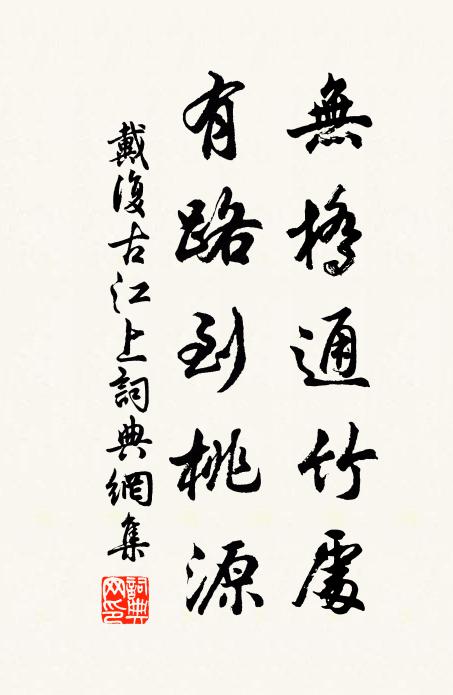 無橋通竹處
有路到桃源
戴復古江上詞典網集
詞典
网印